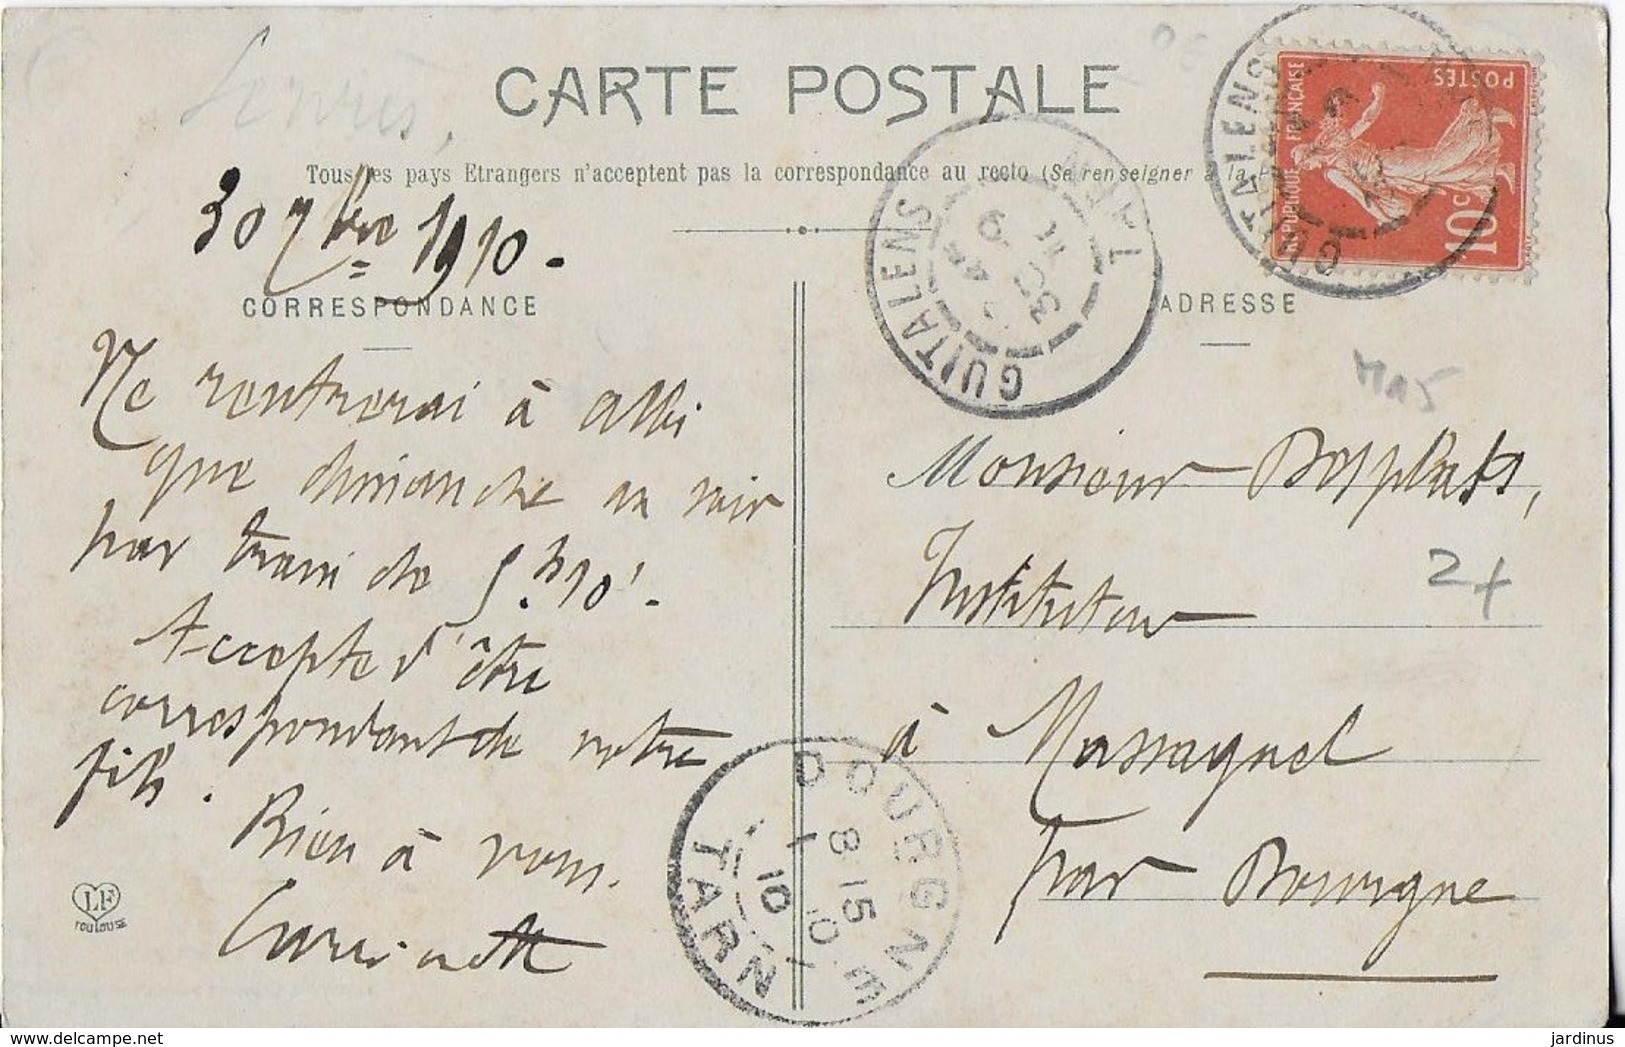 CARTE POSTALE
Tous les pays Etrangers n'acceptent pas la correspondance au recto (Se renseigner à la P
30 7bre 1910.
CORRESPONDANCE
ADRESSE
Ne rentrerai à Albi
que dimanche au soir
par train de 5.h10'.
Accepte d'être
correspondant de votre
fils.
Bien à vous.
LF
TOULOUSE
Monsieur Desplats,
Instituteur
à Massaguel
par Dourgne
REPUBLIQUE FRANCAISE
POSTES
10c
GUITALENS
GUITALENS
TARN
DOURGNE
8 15
1 10
10
TARN
2+
jardinus